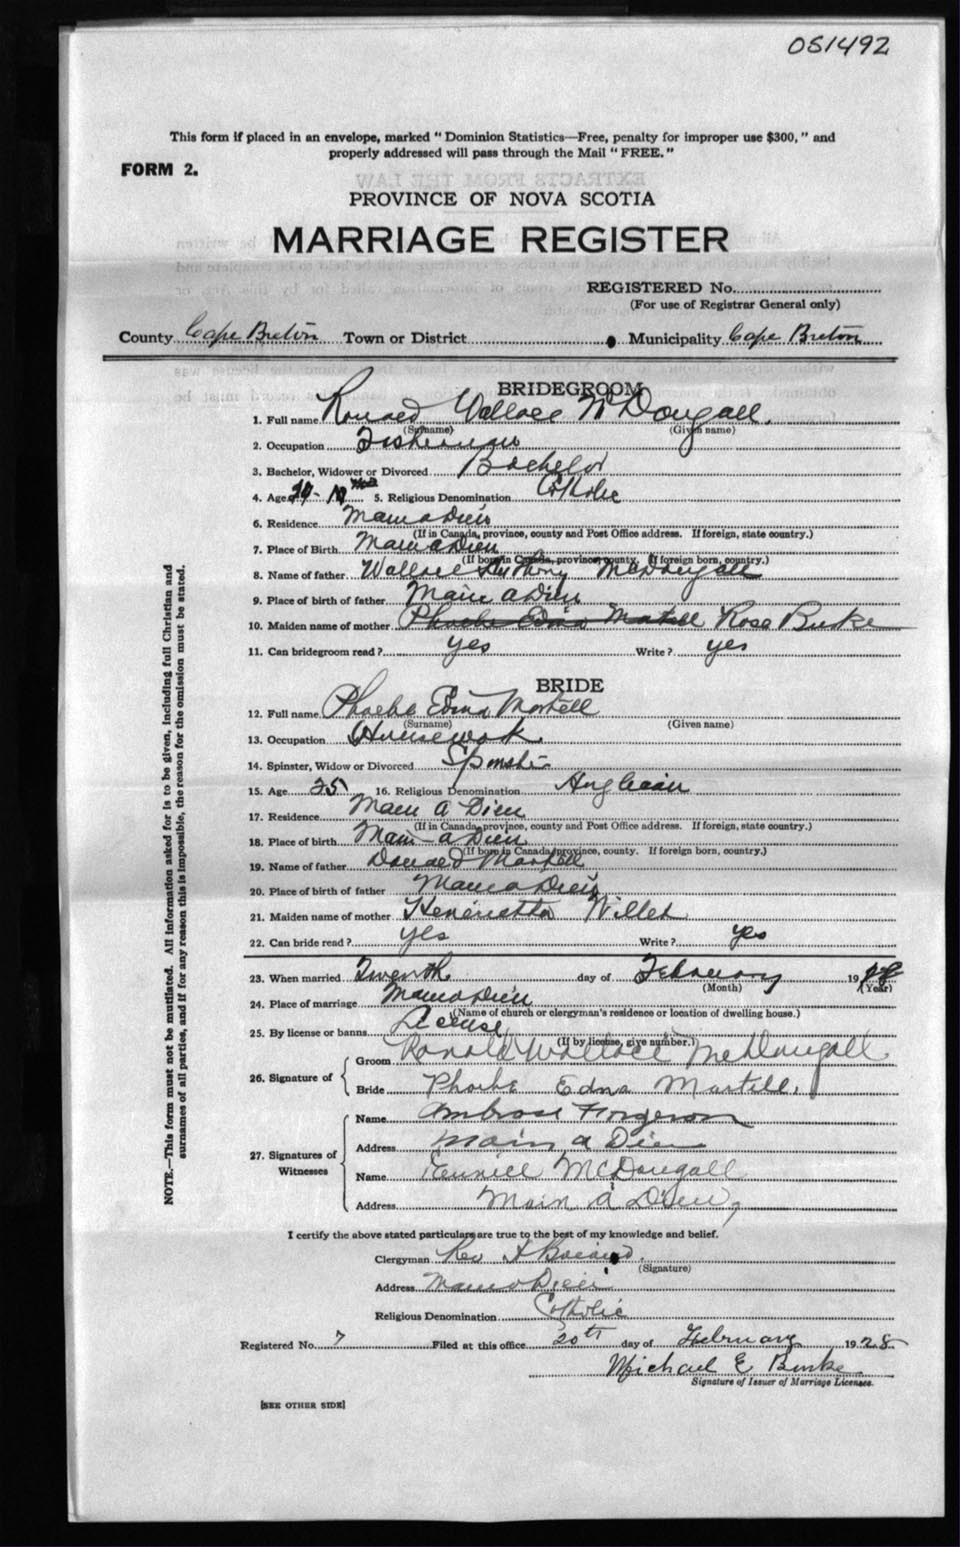 051492
This form if placed in an envelope, marked " Dominion Statistics—Free, penalty for improper use $300, " and
properly addressed will pass through the Mail " FREE. "
FORM 2.
EXTRACTS FROM THE LAW
PROVINCE OF NOVA SCOTIA
MARRIAGE REGISTER
REGISTERED No.
(For use of Registrar General only)
County Cape Breton Town or District Municipality Cape Breton
BRIDEGROOM
1. Full name Ronald Wallace McDougall.
(Surname) (Given name)
2. Occupation Fisherman
3. Bachelor, Widower or Divorced Bachelor
4. Age 5. Religious Denomination Catholic
6. Residence Main a Dieu
(If in Canada, province, county and Post Office address. If foreign, state country.)
7. Place of Birth Main a Dieu
(If born in Canada, province, county. If foreign born, country.)
8. Name of father Wallace Anthony McDougall
9. Place of birth of father Main a Dieu
10. Maiden name of mother Phoebe Edna Martell Rose Burke
11. Can bridegroom read? yes Write? yes
BRIDE
12. Full name Phoebe Edna Martell
(Surname) (Given name)
13. Occupation Housework
14. Spinster, Widow or Divorced Spinster
15. Age 25 16. Religious Denomination Anglican
17. Residence Main a Dieu
(If in Canada, province, county and Post Office address. If foreign, state country.)
18. Place of birth Main-a Dieu
(If born in Canada, province, county. If foreign born, country.)
19. Name of father Donald Martell
20. Place of birth of father Main a Dieu
21. Maiden name of mother Henerietta
22. Can bride read? yes Write? yes
23. When married day of February 1928
(Month) (Year)
24. Place of marriage Main a Dieu
(Name of church or clergyman's residence or location of dwelling house.)
25. By license or banns License
(If by license, give number.)
26. Signature of
Groom Ronald Wallace McDougall
Bride Phoebe Edna Martell.
27. Signatures of Witnesses
Name Ambrose Firgerson
Address Main a Dieu
Name McDougall
Address Main a Dieu,
I certify the above stated particulars are true to the best of my knowledge and belief.
Clergyman Rev
(Signature)
Address Main a Dieu
Religious Denomination Catholic
Registered No. 7 Filed at this office 20th day of February 1928
Michael E Burke
Signature of Issuer of Marriage Licenses.
[SEE OTHER SIDE]
NOTE.—This form must not be mutilated. All information asked for is to be given, including full Christian and
surnames of all parties, and if for any reason this is impossible, the reason for the omission must be stated.